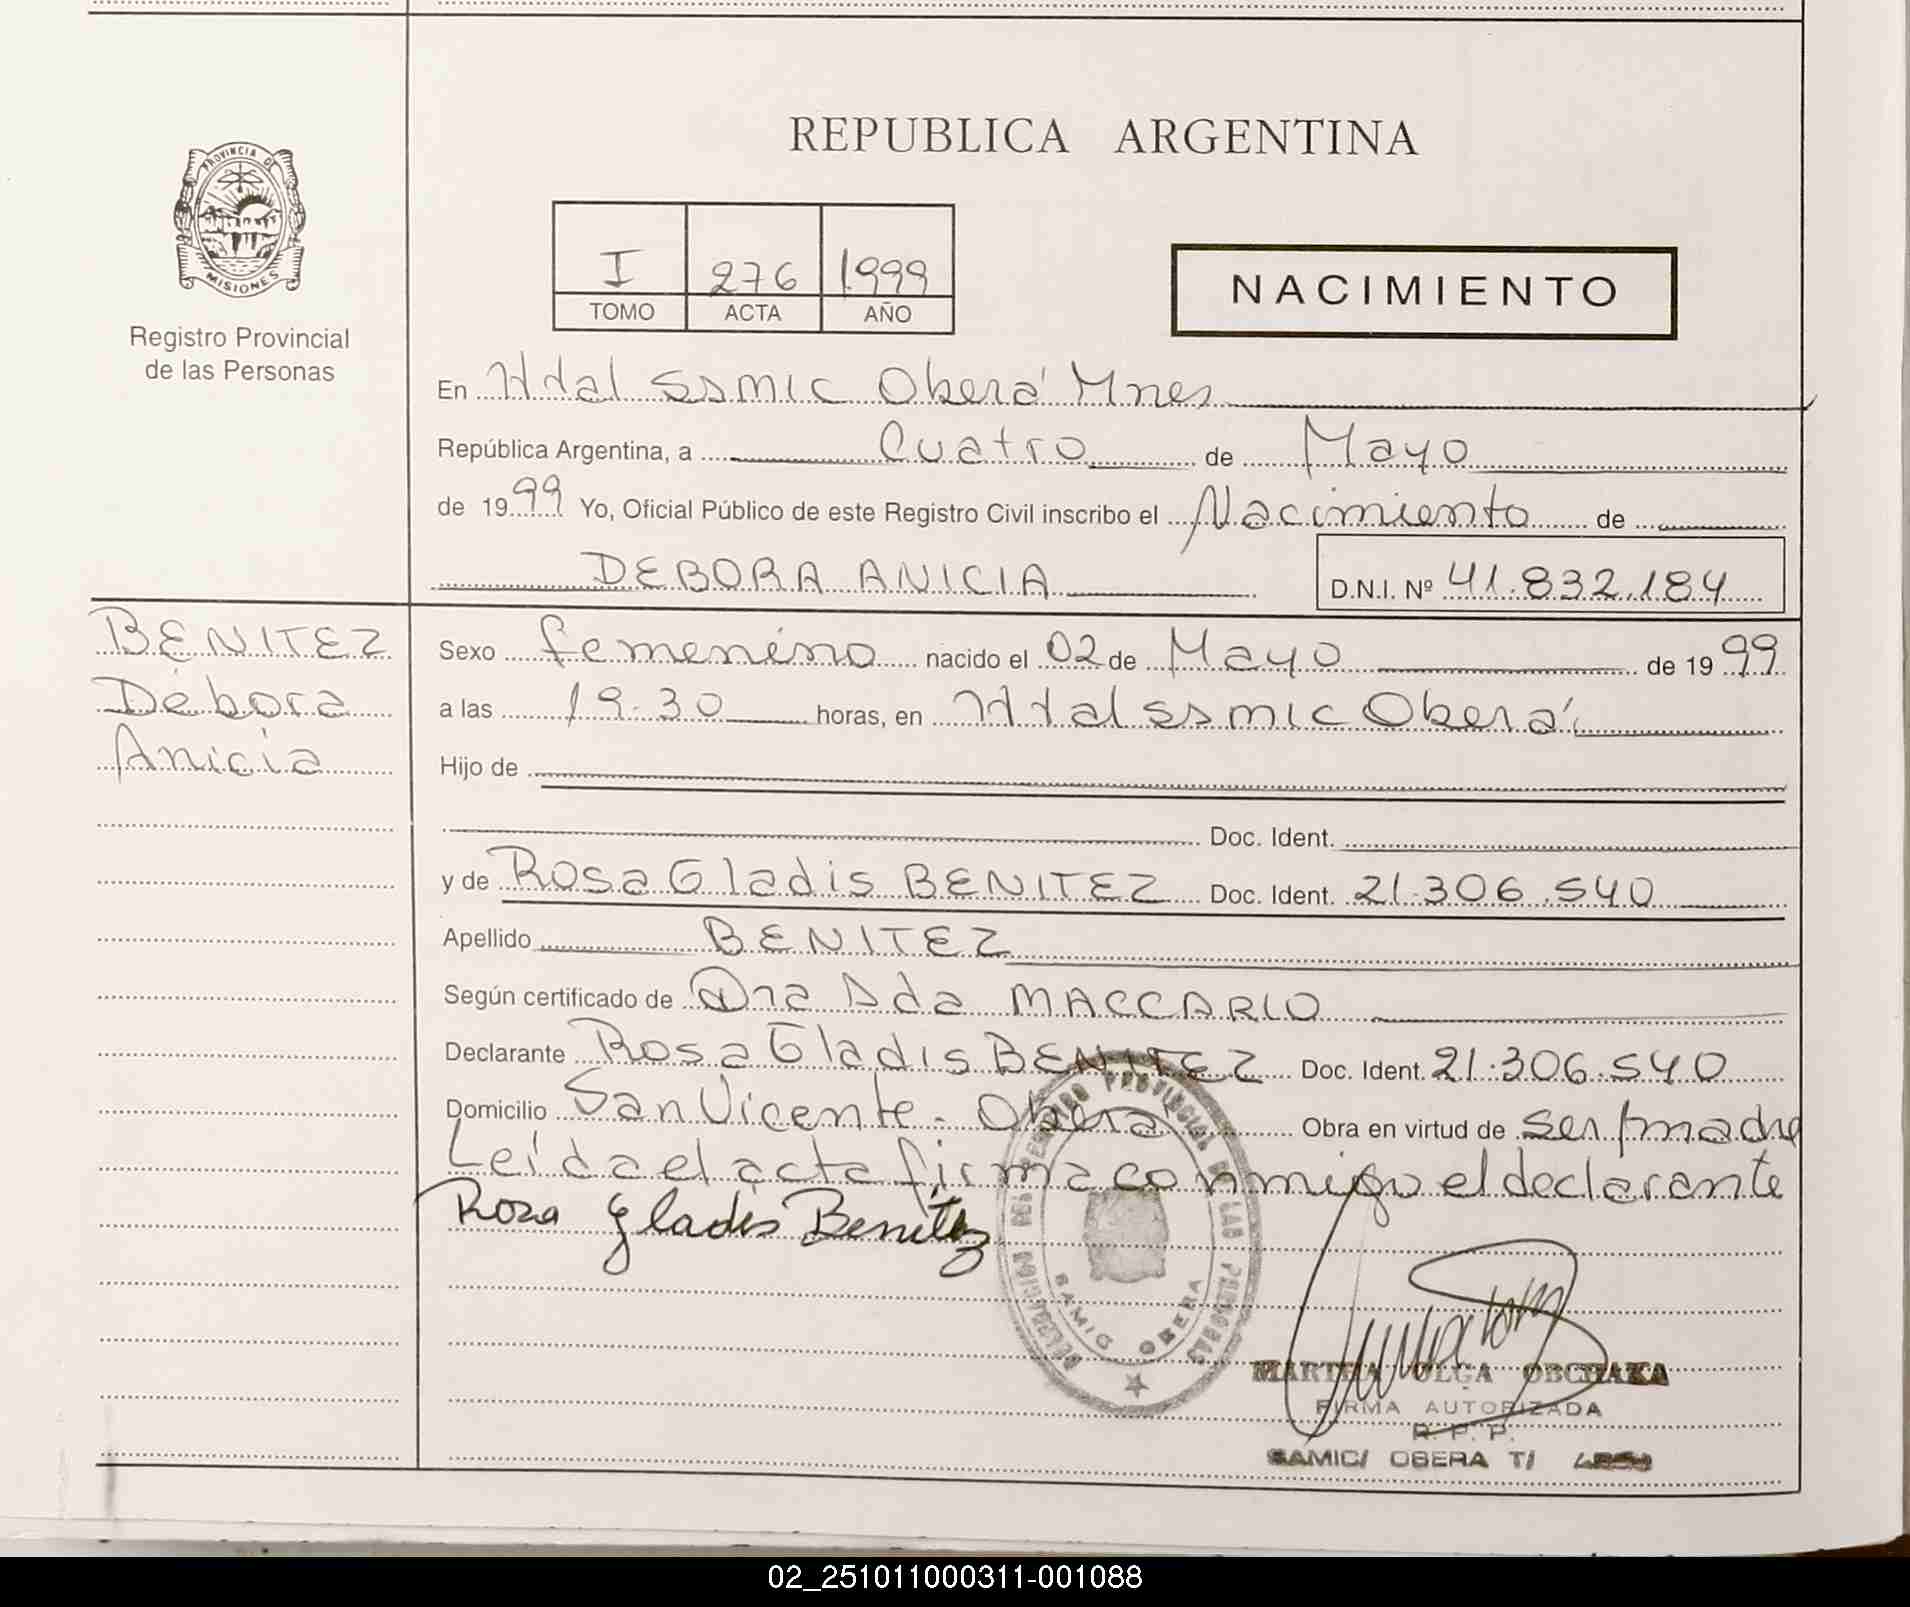 REPUBLICA ARGENTINA
PROVINCIA DE
MISIONES
Registro Provincial
de las Personas
I 276 1999
TOMO ACTA AÑO
NACIMIENTO
En Htal SSMIC Oberá Mnes
República Argentina, a Cuatro de Mayo
de 1999 Yo, Oficial Público de este Registro Civil inscribo el Nacimiento de
DEBORA ANICIA D.N.I. Nº 41.832.184
BENITEZ
Débora
Anicia
Sexo femenino nacido el 02 de Mayo de 1999
a las 19.30 horas, en Htal SSMIC Oberá
Hijo de
Doc. Ident.
y de Rosa Gladis BENITEZ Doc. Ident. 21.306.540
Apellido BENITEZ
Según certificado de Dra Ada MACCARIO
Declarante Rosa Gladis BENITEZ Doc. Ident. 21.306.540
Domicilio San Vicente - Oberá Obra en virtud de ser madre
Leída el acta firma conmigo el declarante
Rosa Gladis Benitez
DELEGACION DEL REGISTRO PROVINCIAL DE LAS PERSONAS
SAMIC OBERA
MARTHA OLGA OBCHAKA
FIRMA AUTORIZADA
R. P. P.
SAMIC/ OBERA T/
02_251011000311-001088